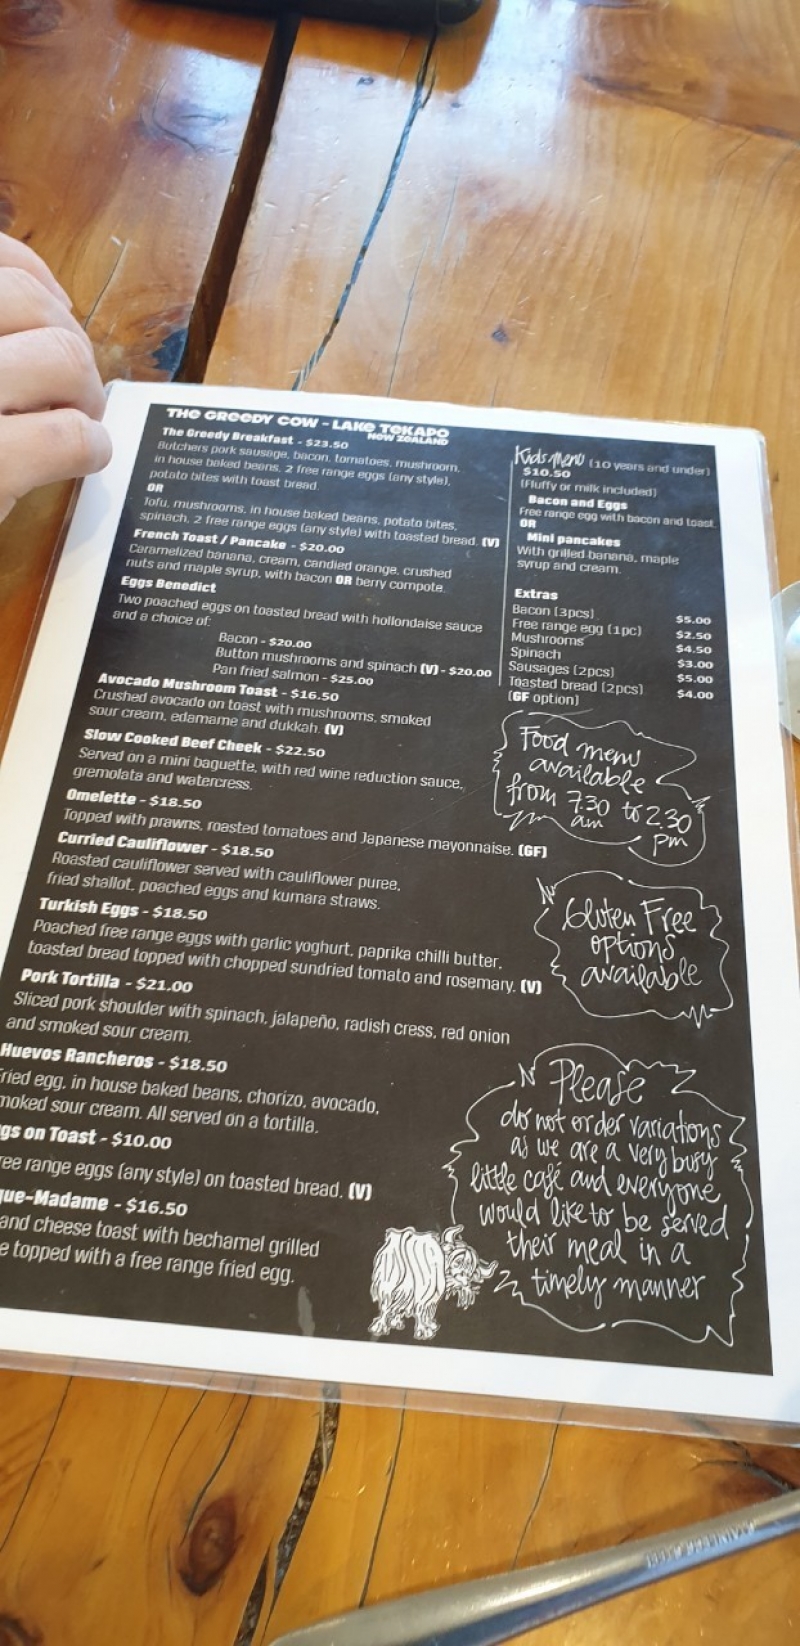 THE GREEDY COW - LAKE TEKAPO
NEW ZEALAND
The Greedy Breakfast - $23.50
Butchers pork sausage, bacon, tomatoes, mushroom,
in house baked beans, 2 free range eggs (any style),
potato bites with toast bread.
OR
Tofu, mushrooms, in house baked beans, potato bites,
spinach, 2 free range eggs (any style) with toasted bread. (V)
French Toast / Pancake - $20.00
Caramelized banana, cream, candied orange, crushed
nuts and maple syrup, with bacon OR berry compote.
Eggs Benedict
Two poached eggs on toasted bread with hollondaise sauce
and a choice of:
Bacon - $20.00
Button mushrooms and spinach (V) - $20.00
Pan fried salmon - $25.00
Avocado Mushroom Toast - $16.50
Crushed avocado on toast with mushrooms, smoked
sour cream, edamame and dukkah. (V)
Slow Cooked Beef Cheek - $22.50
Served on a mini baguette, with red wine reduction sauce,
gremolata and watercress.
Omelette - $18.50
Topped with prawns, roasted tomatoes and Japanese mayonnaise. (GF)
Curried Cauliflower - $18.50
Roasted cauliflower served with cauliflower puree,
fried shallot, poached eggs and kumara straws.
Turkish Eggs - $18.50
Poached free range eggs with garlic yoghurt, paprika chilli butter,
toasted bread topped with chopped sundried tomato and rosemary. (V)
Pork Tortilla - $21.00
Sliced pork shoulder with spinach, jalapeño, radish cress, red onion
and smoked sour cream.
Huevos Rancheros - $18.50
ried egg, in house baked beans, chorizo, avocado,
moked sour cream. All served on a tortilla.
gs on Toast - $10.00
ree range eggs (any style) on toasted bread. (V)
que-Madame - $16.50
and cheese toast with bechamel grilled
e topped with a free range fried egg.
Kids menu (10 years and under)
$10.50
(Fluffy or milk included)
Bacon and Eggs
Free range egg with bacon and toast.
OR
Mini pancakes
With grilled banana, maple
syrup and cream.
Extras
Bacon (3pcs) $5.00
Free range egg (1pc) $2.50
Mushrooms $4.50
Spinach $3.00
Sausages (2pcs) $5.00
Toasted bread (2pcs) $4.00
(GF option)
Food menu
available
from 7.30 to 2.30
am pm
Gluten Free
options
available
Please
do not order variations
as we are a very busy
little café and everyone
would like to be served
their meal in a
timely manner